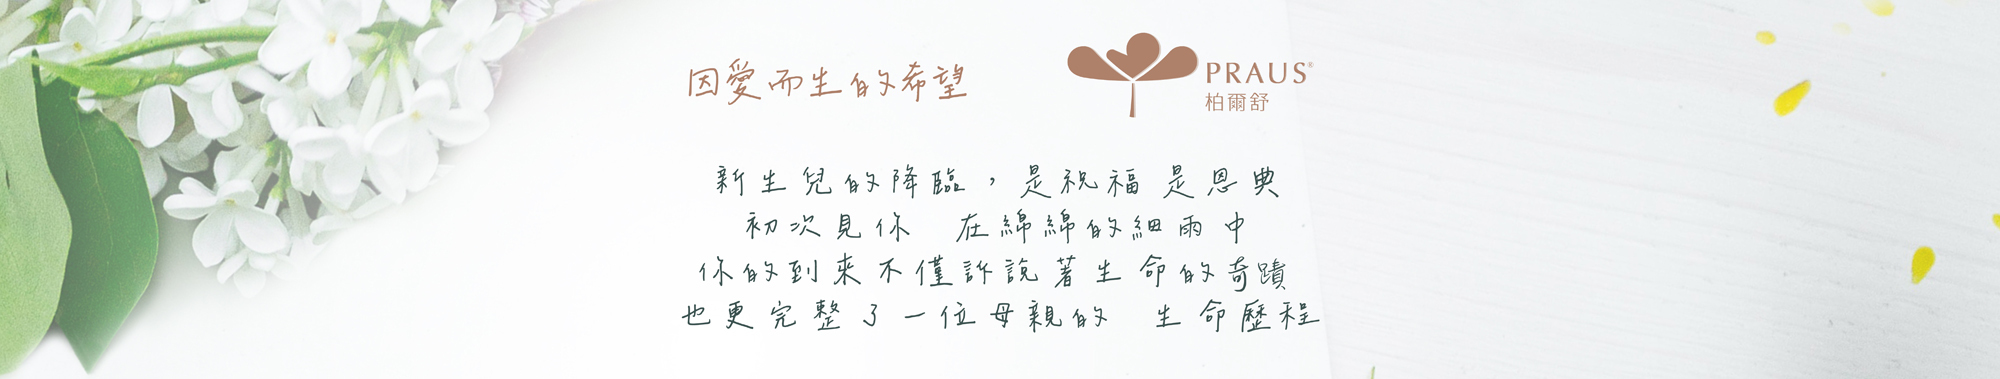 因愛而生的希望
PRAUS®
柏爾舒
新生兒的降臨，是祝福 是恩典
初次見你 在綿綿的細雨中
你的到來不僅訴說著生命的奇蹟
也更完整了一位母親的 生命歷程